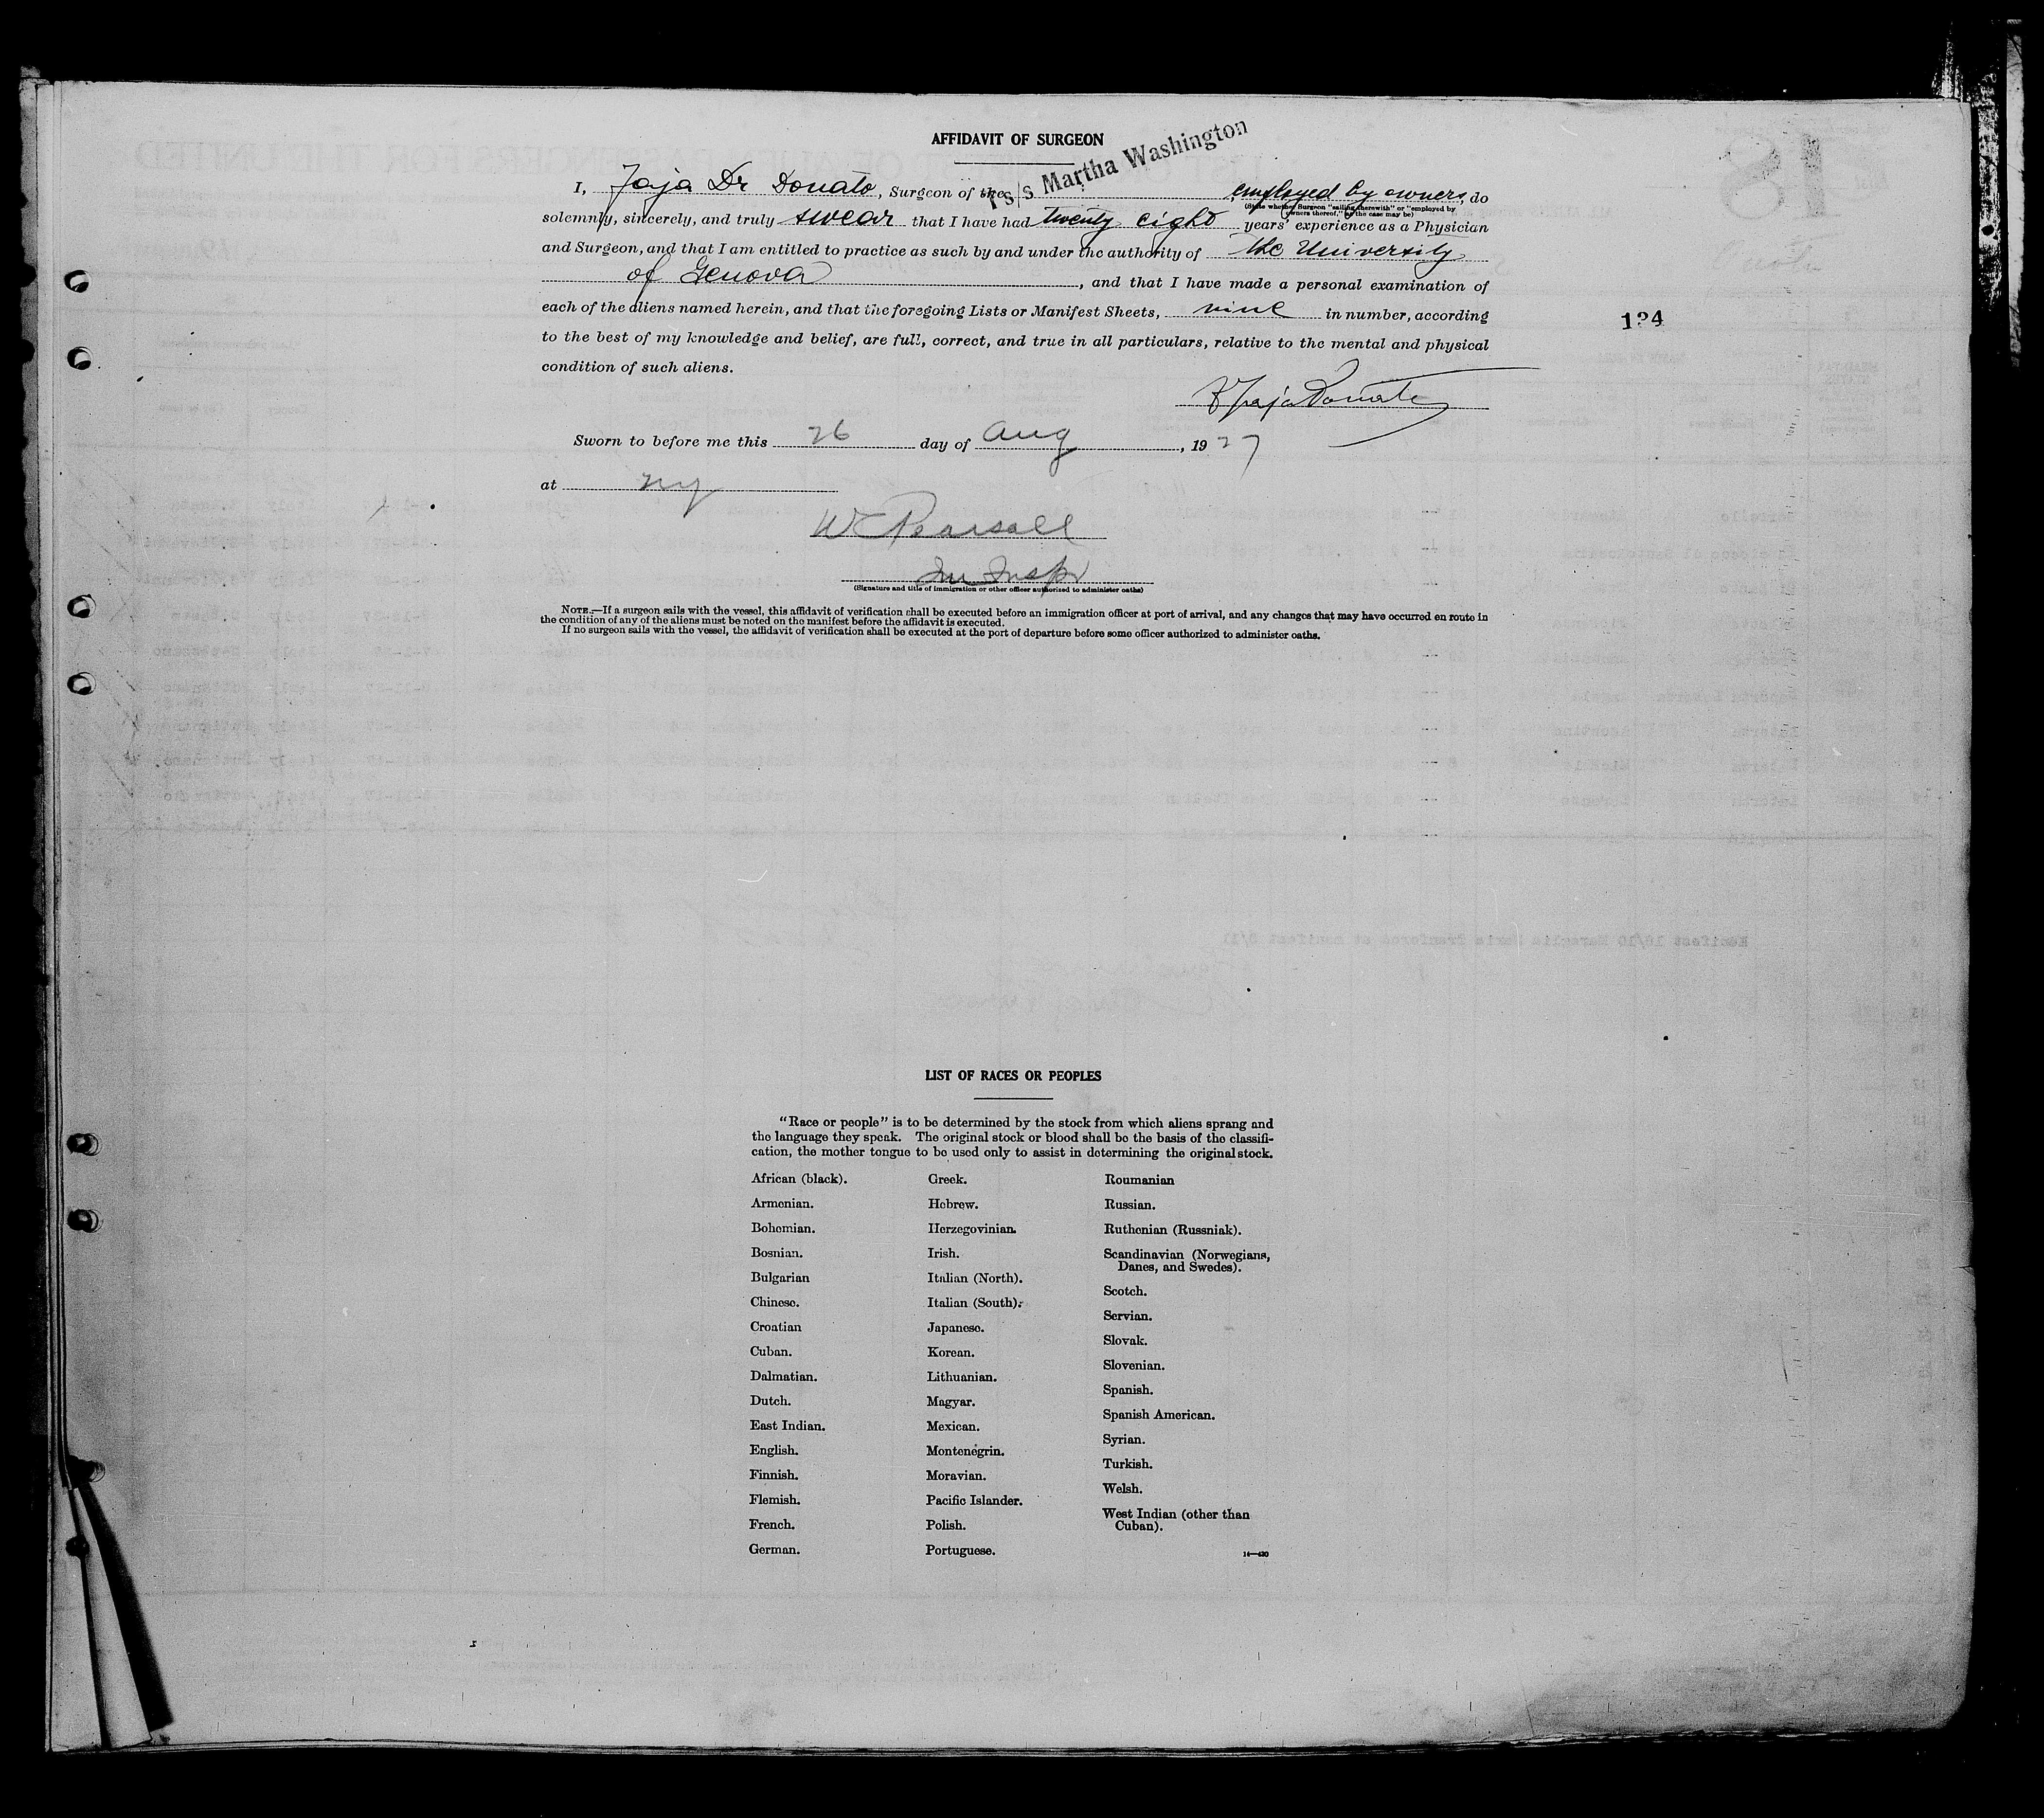 AFFIDAVIT OF SURGEON
s/s Martha Washington
I, Jaja Dr Donato, Surgeon of the employed by owners, do
(State whether Surgeon "sailing therewith" or "employed by
owners thereof," as the case may be)
solemnly, sincerely, and truly swear that I have had twenty eight years' experience as a Physician
and Surgeon, and that I am entitled to practice as such by and under the authority of the University
of Genova, and that I have made a personal examination of
each of the aliens named herein, and that the foregoing Lists or Manifest Sheets, nine in number, according
134
to the best of my knowledge and belief, are full, correct, and true in all particulars, relative to the mental and physical
condition of such aliens.
Jaja Donato
Sworn to before me this 26 day of Aug, 1927
at NY
W Pearsall
Im Inspr
(Signature and title of immigration or other officer authorized to administer oaths)
NOTE.—If a surgeon sails with the vessel, this affidavit of verification shall be executed before an immigration officer at port of arrival, and any changes that may have occurred en route in
the condition of any of the aliens must be noted on the manifest before the affidavit is executed.
If no surgeon sails with the vessel, the affidavit of verification shall be executed at the port of departure before some officer authorized to administer oaths.
LIST OF RACES OR PEOPLES
"Race or people" is to be determined by the stock from which aliens sprang and
the language they speak. The original stock or blood shall be the basis of the classifi-
cation, the mother tongue to be used only to assist in determining the original stock.
African (black).
Armenian.
Bohemian.
Bosnian.
Bulgarian
Chinese.
Croatian
Cuban.
Dalmatian.
Dutch.
East Indian.
English.
Finnish.
Flemish.
French.
German.
Greek.
Hebrew.
Herzegovinian.
Irish.
Italian (North).
Italian (South).
Japanese.
Korean.
Lithuanian.
Magyar.
Mexican.
Montenegrin.
Moravian.
Pacific Islander.
Polish.
Portuguese.
Roumanian
Russian.
Ruthenian (Russniak).
Scandinavian (Norwegians,
Danes, and Swedes).
Scotch.
Servian.
Slovak.
Slovenian.
Spanish.
Spanish American.
Syrian.
Turkish.
Welsh.
West Indian (other than
Cuban).
14—430